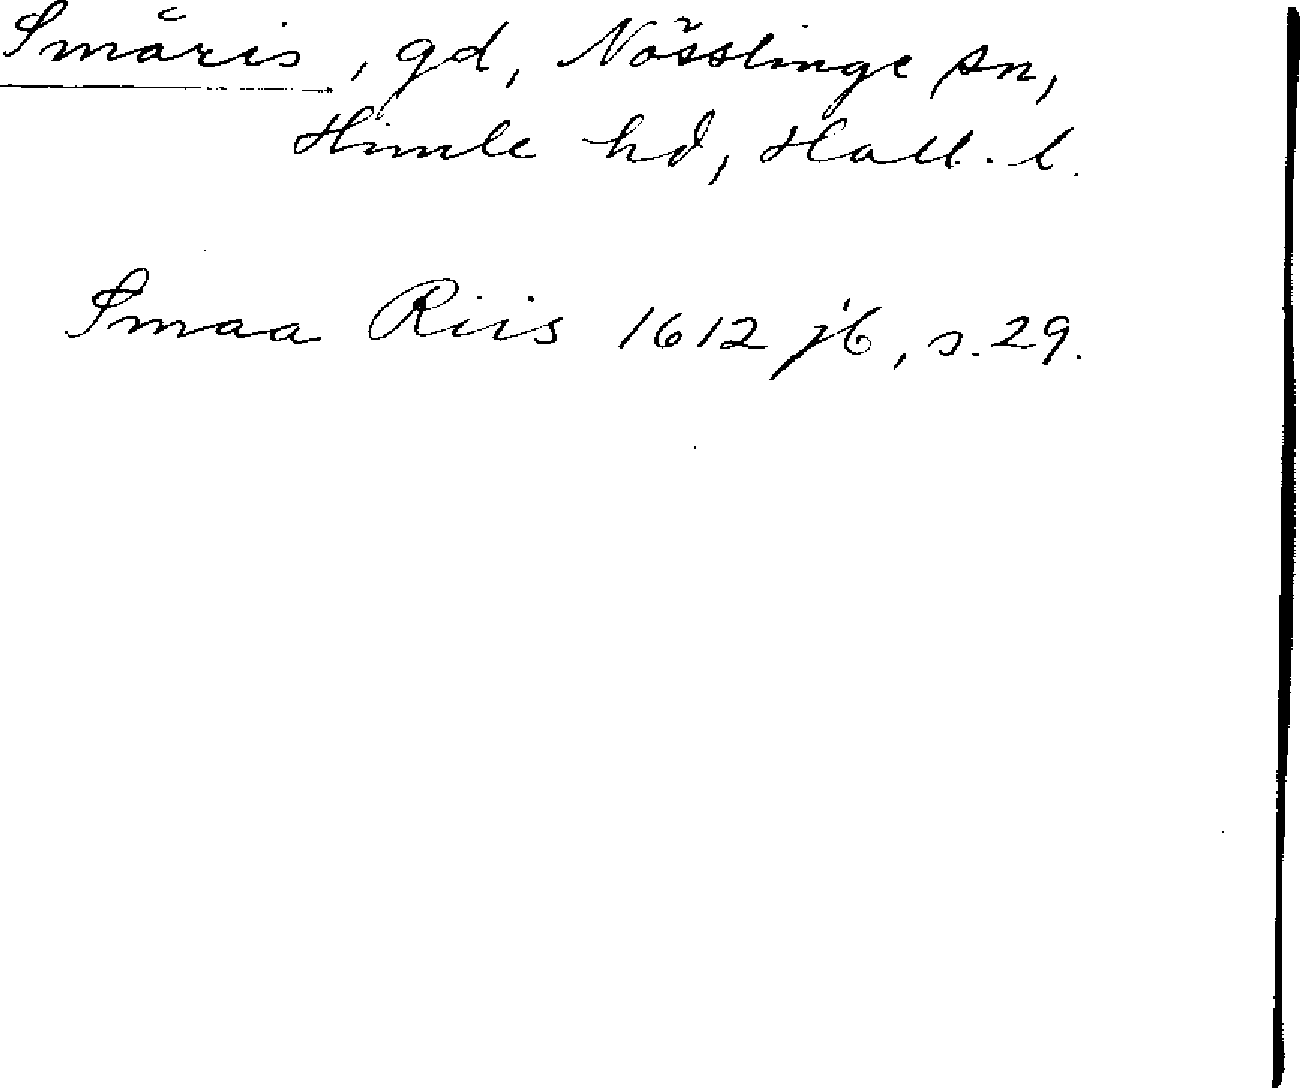 Småris, gd, Nösslinge sn,
Himle hd, Hall. l.
Smaa Riis 1612 jb, s. 29.